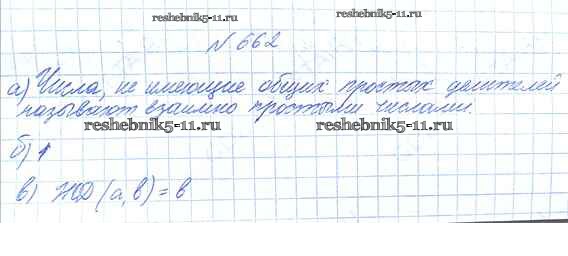 reshebnik5-11.ru
reshebnik5-11.ru
N 662
а) Числа, не имеющие общих простых делителей
называют взаимно простыми числами.
reshebnik5-11.ru
reshebnik5-11.ru
б) 1
в) НОД (а, в) = в